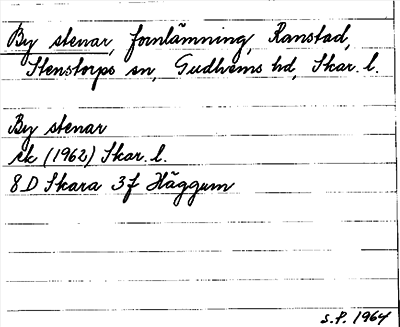 By stenar, fornlämning, Ranstad,
Stenstorps sn, Gudhems hd, Skar. l.
By stenar
ek (1962) Skar. l.
8 D Skara 3f Häggum
S.P. 1964